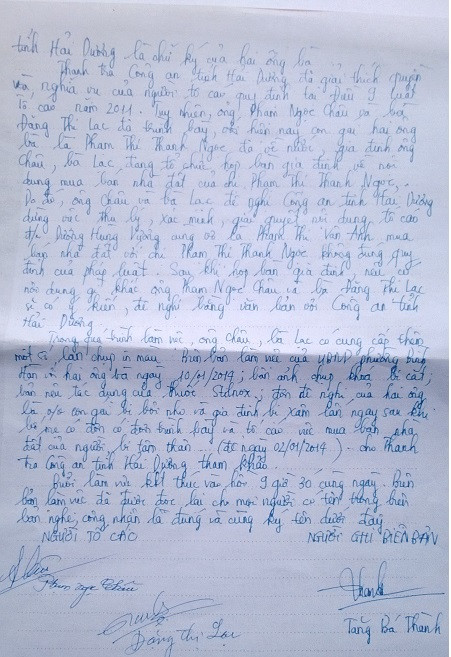 tỉnh Hải Dương là chữ ký của hai ông bà
Thanh tra Công an tỉnh Hải Dương đã giải thích quyền
và, nghĩa vụ của người tố cáo quy định tại Điều 9 Luật
Tố cáo năm 2011. Tuy nhiên, ông Phạm Ngọc Châu và bà
Đặng Thị Lạc đã trình bày, do hiện nay con gái hai ông
bà là Phạm Thị Thanh Ngọc đã về nước, gia đình ông
Châu, bà Lạc đang tổ chức họp bàn gia đình về nội
dung mua bán nhà đất của chị Phạm Thị Thanh Ngọc,
Do đó, ông Châu và bà Lạc đề nghị Công an tỉnh Hải Dương
dừng việc thụ lý, xác minh, giải quyết nội dung tố cáo
đ/c Dương Hùng Vương cùng vợ là Phạm Thị Vân Anh mua
bán nhà đất với chị Phạm Thị Thanh Ngọc không đúng quy
định của pháp luật. Sau khi họp bàn gia đình, nếu có
nội dung gì khác ông Phạm Ngọc Châu và bà Đặng Thị Lạc
sẽ có ý kiến, đề nghị bằng văn bản với Công an tỉnh
Hải Dương.
Trong quá trình làm việc, ông Châu, bà Lạc có cung cấp thêm
một số bản chụp in màu Biên bản làm việc của UBND phường
Hàn với hai ông bà ngày 10/01/2014; bản ảnh chụp khoá bị cắt,
bản nêu tác dụng của thuốc Stilnox; đơn đề nghị của hai ông
bà v/v con gái bị bôi nhọ và gia đình bị xâm lấn ngay sau khi
bố mẹ có đơn có đơn trình bày và tố cáo việc mua bán nhà
đất của người bị tâm thần... (đề ngày 02/01/2014) - cho Thanh
tra Công an tỉnh Hải Dương tham khảo.
Buổi làm việc kết thúc vào hồi 9 giờ 30 cùng ngày. Biên
bản làm việc đã được đọc lại cho mọi người có tên trong biên
bản nghe, công nhận là đúng và cùng ký tên dưới đây
NGƯỜI TỐ CÁO NGƯỜI GHI BIÊN BẢN
Phạm Ngọc Châu
Thanh
Đặng Thị Lạc
Tăng Bá Thành